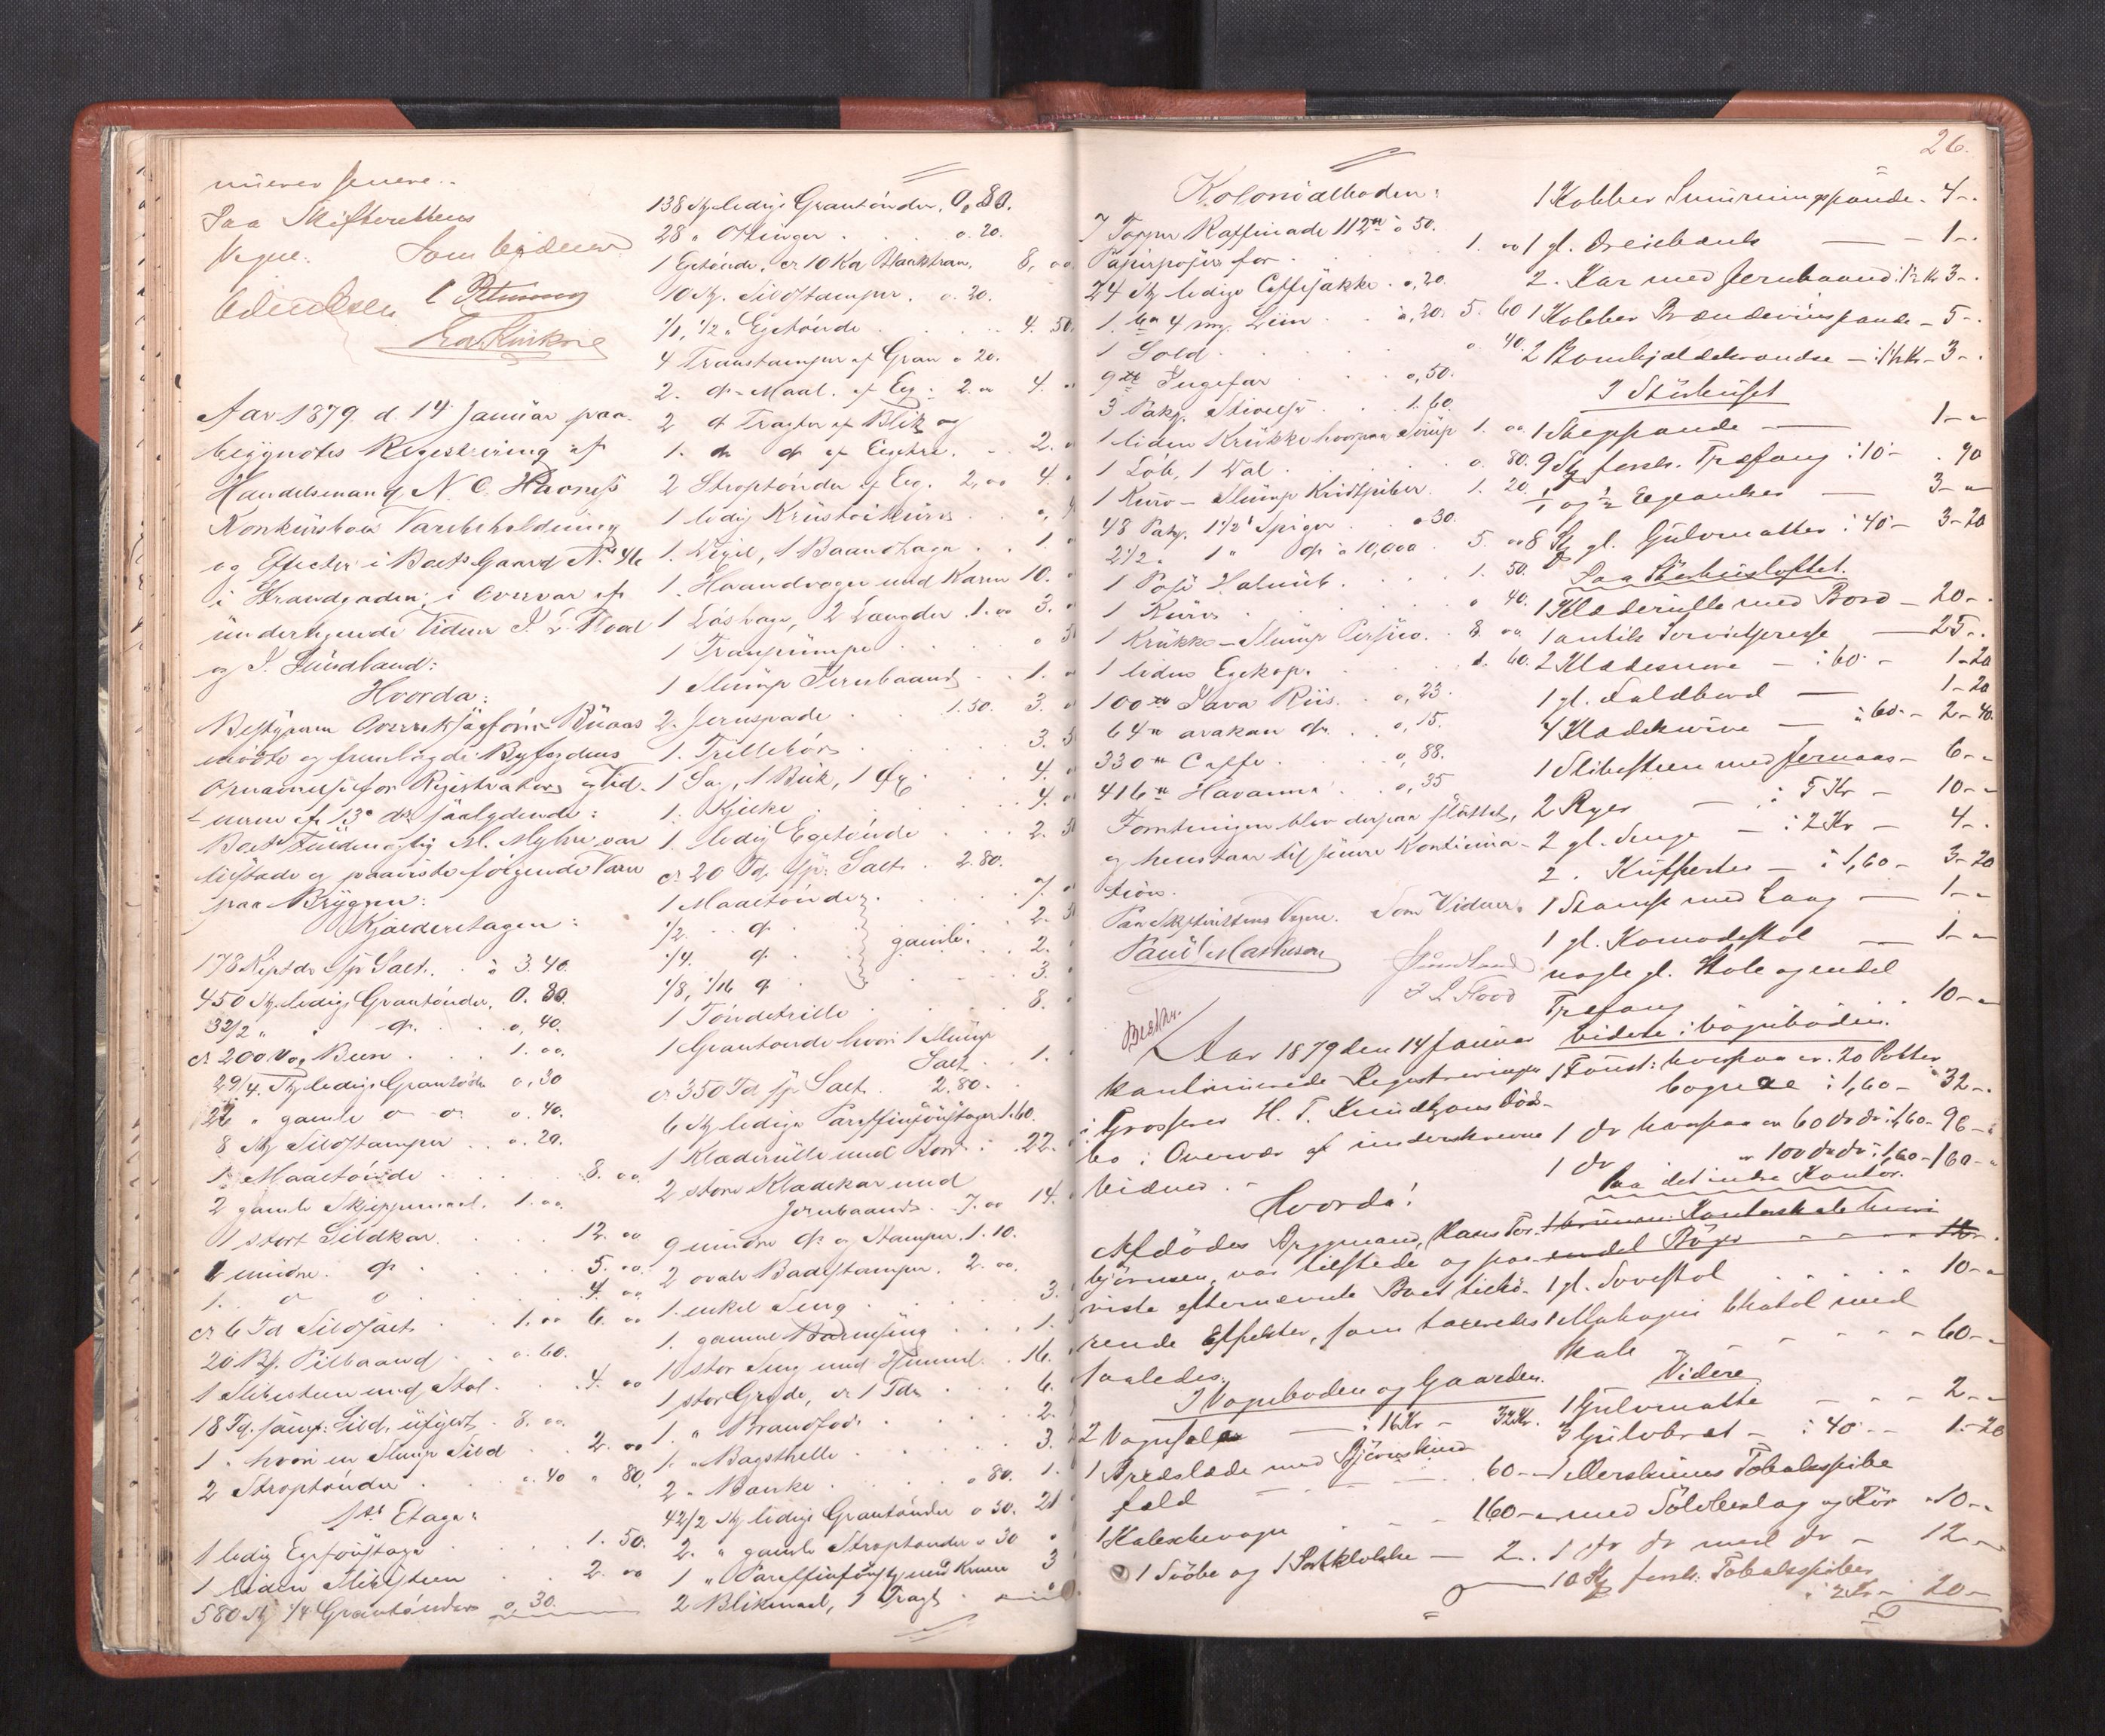 senere..
Paa Skifterettens
Vegne. Som Vidner
Aar 1879. d. 14 Januar paa-
begyndtes Registrering af
Handelsmand N. C.
Konkursboes Varebeholdning
og Effecter i Boets Gaard No 46
i Strandgaden, i Overvær af
undertegnede Vidner J. L. Flood
og J. Sundland:
Hvorda:
Bestyreren Overretssagfører
mødte og fremlagde Byfogdens
Opnævnelse for Registrator og Vid-
nerne af 13de ds saalydende:
Boets Fuldmægtig M. Myhre var
tilstede og paaviste følgende Varer
paa Bryggen:
Kjælderetagen:
178 Sp: Salt. á 3.40.
450 Stk. ledige Grantønder. 0.80.
32/2 " " do. 0,40.
cr 200 Vog Been 1.00.
29/4. Stk ledige Grantønder 0,30
22 " gamle do do 0.40.
8 Stk Sildstamper 0.20.
1. Maaltønde 8.00
2 gamle Skjeppemaal. 1.00.
1 stort Sildkar. 12.00
1 mindre do 5.00.
1. do do 4.00
cr 6 Td Sildsalt 1.00 6.00
20 Pilbaand 0.60.
1 Slibesteen med Stol 4.00
18 Td. Sild, 8.00.
1 " hvori en Slump Sild 2.00
2 Stroptønder 0.40 " 80.
1ste Etage:
1 ledig Egefoustage 1.50.
1 liden Slibesteen 2.00
580 Stk 1/4 Grantønder 0,30.
138 Stk ledige Grantønder. 0,80.
28 " Ottinger 0.20.
1 Egetønde, cr 10 Kd Blanktran. 8,00
10 Stk. Sildstamper. 0.20.
1/1, 1/2 " Egetønde 4.50.
4 Transtamper af Gran 0.20.
2. do Maal. af Eg. 2.00 4.
2 do Tragter af Blik og
1. do do af Egetræ. 2.
2 Stroptønder af Eg. 2,00 4.
1 ledig
1. 1 Baandhage 1.
1. Haandvogn med Karm 10.
1 2 Længder 1.00 3.
1 Tranpumpe
1 Slump Jernbaand 1.
2. Jernspade 1.50. 3.
1. Trillebør 3.
1 Sag, 1 Buk, 1 Øx 4.
1. Kjerre 4.
1. ledig Egetønde 2.
cr 20 Td. Sp. Salt 2.80.
1 Maaltønde 7.
1/2. do 2.
1/4. do gamle. 2.
1/8, 1/16 do 3.
1 Tøndetrille 8.
1 Grantønde hvori 1 Slump
Salt 1.
cr 350 Td Sp Salt 2.80.
6 Stk ledige Paraffinfoustager 1.60.
1 Klæderulle med Bord 22.
2 store Klædekar med
Jernbaand 7.00 14.
9 mindre do og Stamper. 1.10.
2 ovale Badestamper. 2.00.
1. enkel Seng 3.
1. gammel Barneseng 1.
1 stor Seng med Himmel 16.
1 stor Gryde, cr 1 Tde 6.
1. " Brandfod. 2.
1. " Bagsthelle 3.
2 " Bænke 0.80. 1.
42/2 Stk ledige Grantønder 0.50. 21
2. " gamle Stroptønder 0.30
1 " Paraffinfoustage med Kraner 3
2 Blikmaal, 1 Tragt
26.
Kolonialboden:
7 Toppe Raffinade 112 á 50.
Papirposer for 1.00
24 Stk ledige Caffesække 0,20.
1. 4 mg. Liim á,20. 5.60
1 Sold 0.40.
9 Ingefær 0,50.
3 Pakg. Stivelse 1.60.
1 liden Krukke hvorpaa Sirup 1.00
1 Lob, 1 0.80.
1 Kurv - Slump Kridtpiber. 1.20.
48 Pakg. 1 1/2" Spiger 0.30.
2 1/2. 1" do á 10,000 5.00
1 Pose 1.50.
1 Kurv 0.40.
1 Krukke - Slump Persico. 8.00
1 liden Egekop. 1.60.
100 Java Riis 0,23.
64 arakan do. 0,15.
330 Caffe. 0,88.
416 Havanna 0,35
Forretningen blev derpaa sluttet,
og henstaar til senere Kontinua-
tion.
Paa Skifterettens Vegne. Som Vidner.
Paul Mathesen
J Sundland
J L Flood
Aar 1879 den 14 Januar
kontinuerede Registreringen
i Grosserer H. T. Knudtzons Døds-
bo i Overvær af underskrevne
Vidner.-
Hvorda!
Afdødes Brygmand, Hans Tor-
bjørnsen, var tilstede og paa-
viste efternævnte Boet tilhø-
rende Effekter, som taxeredes
saaledes.
I Vognboden og Gaarden.
2 Vognsæler — á 16 Kr - 32 Kr.
1 Bredslæde med Bjørneskinds
feld 60--
1 Kaleschevogn 160-
1 Svøbe og 1 — 2..
1 Kobber Smurningspande - 4-.
1 gl. Dreiebænk — 1-.
2. Kar med Jernbaand á 1 1/2 Kr 3-.
1 Kobber Brændeviinspande - 5-.
2 — á 1 1/2 Kr - 3-.
I Størhuset
1 Stegpande — 1--
9 Stk forsk. Træfang á 10 - . 90
1/1 og 1/2 Egeanker — 3--
8 Stk gl. Gulvmatter á 40 - 3-20
Paa Størhusloftet.
1 Klæderulle med Bord - 20-.
1 antik Servietpresse — 25-.
2 Klædesnore - á 60 - 1-20
1 gl. Foldbord — 1-20
4 Klædekurve — á 60 - 2-40.
1 Slibesteen med Jernaas - 6--
2 Ryer — á 5 Kr - 10--
2 gl. Senge - á 2 Kr - 4-.
2. Kufferter — á 1,60 - 3-20
1 Stamp med Laag — 1--
1 gl. Komodestol — 1--
nogle gl. Stole og endel
Træfang 10--
Videre i Vognboden.
1 Foust: hvorpaa cr. 20 Potter
Cognac á 1,60 - 32-.
1 do hvorpaa cr 60 do do á 1,60 - 96--
1 do " 100 do do á 1,60 - 160--
Paa det indre Kontor.
endel Bøger
1 gl. Sovestol 10--
1 Mahogni Chatol med
Skab 60--
Videre.
1 Gulvmatte 2--
3 Gulvbræt - á 40 -- 1-20
1 Merskums Tobakspibe
med Sølvbeslag og Rør 10--
1 do do med do - 12--
10 Stk forsk: Tobakspiber
á 2 Kr - 20-